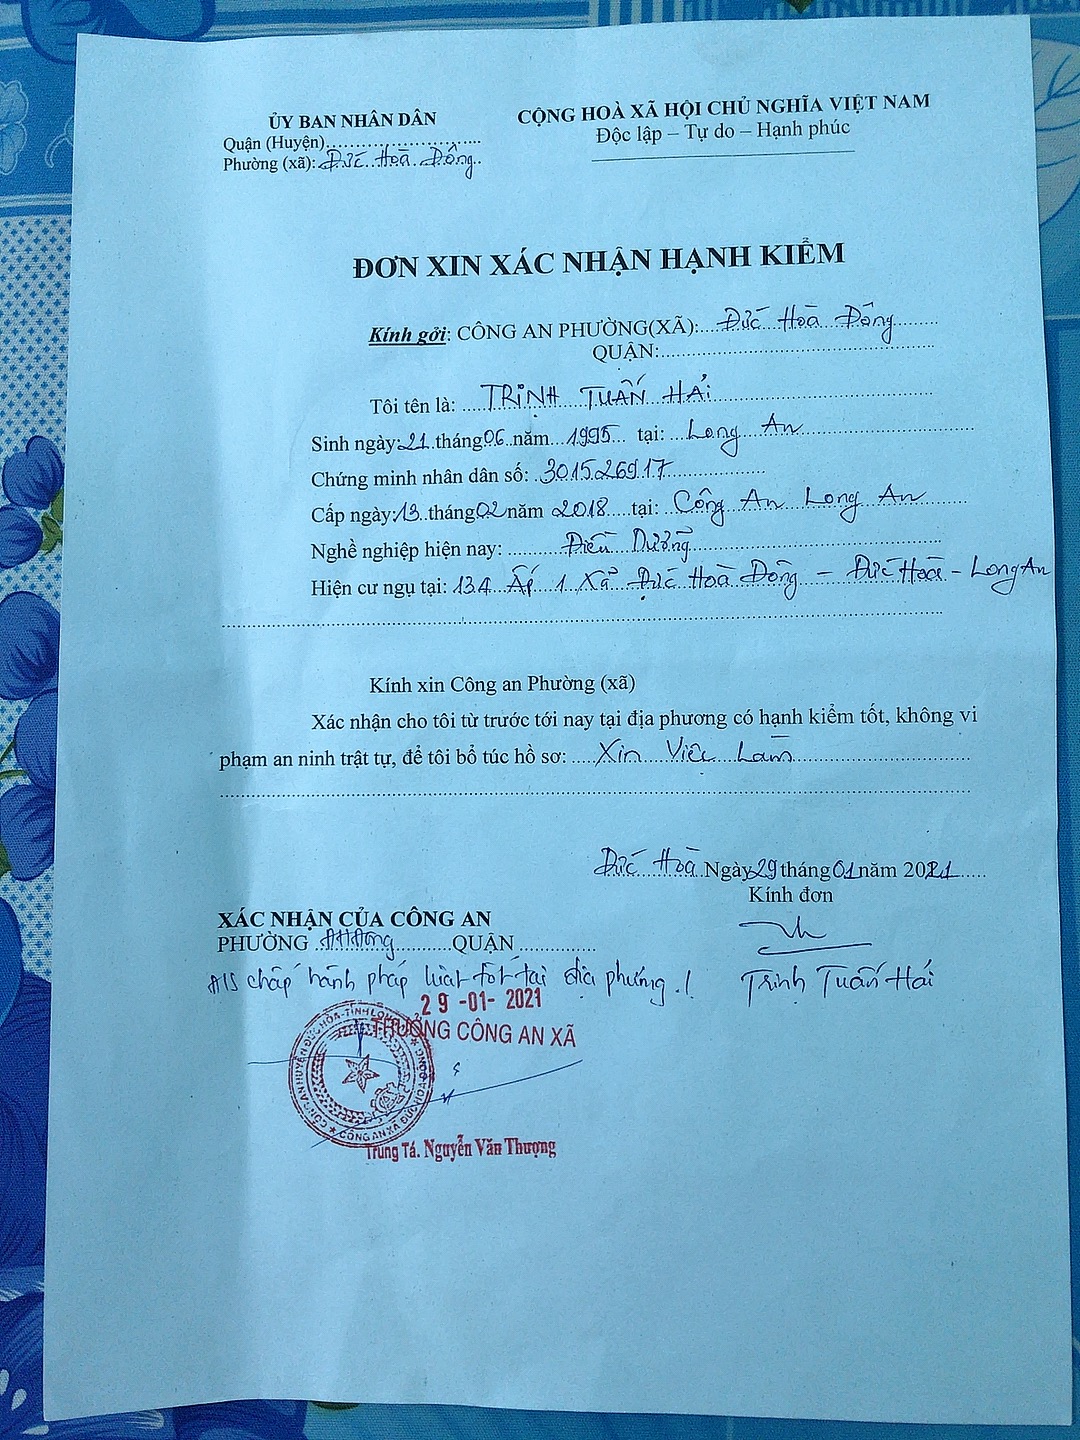 ỦY BAN NHÂN DÂN
Quận (Huyện)..............................
Phường (xã): Đức Hoà Đông
CỘNG HOÀ XÃ HỘI CHỦ NGHĨA VIỆT NAM
Độc lập – Tự do – Hạnh phúc
ĐƠN XIN XÁC NHẬN HẠNH KIỂM
Kính gởi: CÔNG AN PHƯỜNG(XÃ):... Đức Hoà Đông
QUẬN:..............................
Tôi tên là: TRỊNH TUẤN HẢI
Sinh ngày: 21 tháng 06 năm 1995 tại: Long An
Chứng minh nhân dân số: 301526917
Cấp ngày: 13 tháng 02 năm 2018 tại: Công An Long An
Nghề nghiệp hiện nay: Điều Dưỡng
Hiện cư ngụ tại: 134 Ấp 1 Xã Đức Hoà Đông – Đức Hoà – Long An
Kính xin Công an Phường (xã)
Xác nhận cho tôi từ trước tới nay tại địa phương có hạnh kiểm tốt, không vi
phạm an ninh trật tự, để tôi bổ túc hồ sơ: Xin Việc Làm
Đức Hoà Ngày 29 tháng 01 năm 2021
Kính đơn
XÁC NHẬN CỦA CÔNG AN
PHƯỜNG ĐHĐông QUẬN ..............
chấp hành pháp luật tốt tại địa phương./
Trịnh Tuấn Hải
29 -01- 2021
TRƯỞNG CÔNG AN XÃ
CÔNG AN HUYỆN ĐỨC HÒA-TỈNH LONG AN
CÔNG AN XÃ ĐỨC HÒA ĐÔNG
Trung Tá. Nguyễn Văn Thượng